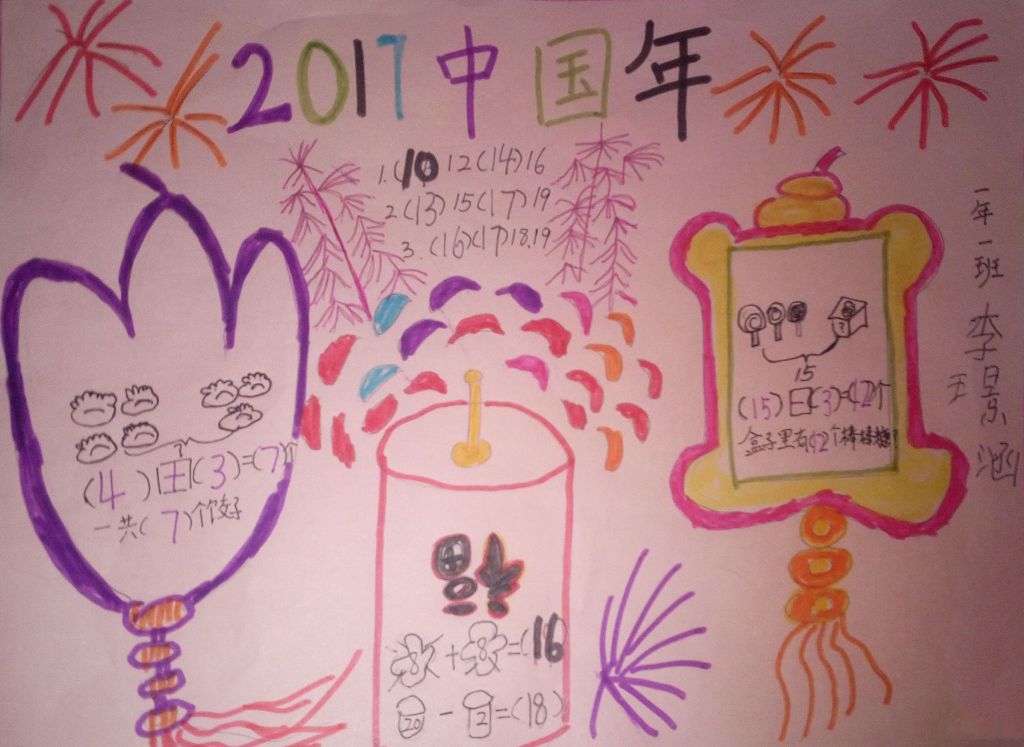 2017中国年
1.(10)12(14)16
2.(13)15(17)19
3.(16)(17)18.19
(4)田(3)=(7)个
一共(7)个饺子
15
(15)曰(3)=(12)个
盒子里有12个棒棒糖
福
8+8=(16
20-2=(18)
一年一班 李景涵